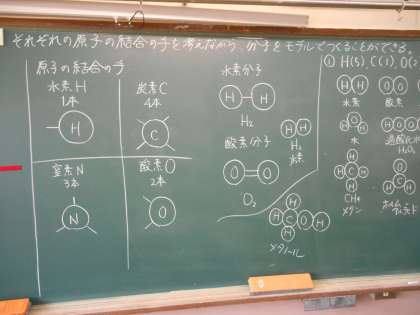 それぞれの原子の結合の手を考えながら、分子をモデルでつくることができる
原子の結合の手
水素 H
1本
H
炭素 C
4本
C
窒素 N
3本
N
酸素 O
2本
O
水素分子
H H
H2
酸素分子
O O
O2
H H
水素
H
H C O H
H
メタノール
① H(5), C(1), O(2
H H
水素
O O
酸素
H O H
水
過酸化水
H2O2
H
H C H
H
CH4
メタン
O
C
H H
ホルムアルデヒド